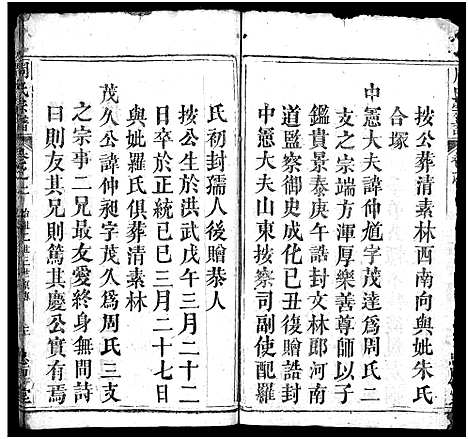 按公葬清素林西南向與妣朱氏
合塚
中憲大夫諱仲尴字茂達為周氏二
支之宗端方渾厚樂善尊師以子
鑑貴景泰庚午誥封文林郎河南
道監察御史成化己丑復誥封
中憲大夫山東按察司副使配羅
氏初封孺人後贈恭人
按公生於洪武戊午三月二十二
日卒於正統己巳三月二十七日
與妣羅氏俱葬清素林
茂久公諱仲昶字茂久為周氏三支
之宗事二兄最友愛終身無間詩
曰則友其兄則篤其慶公實有焉